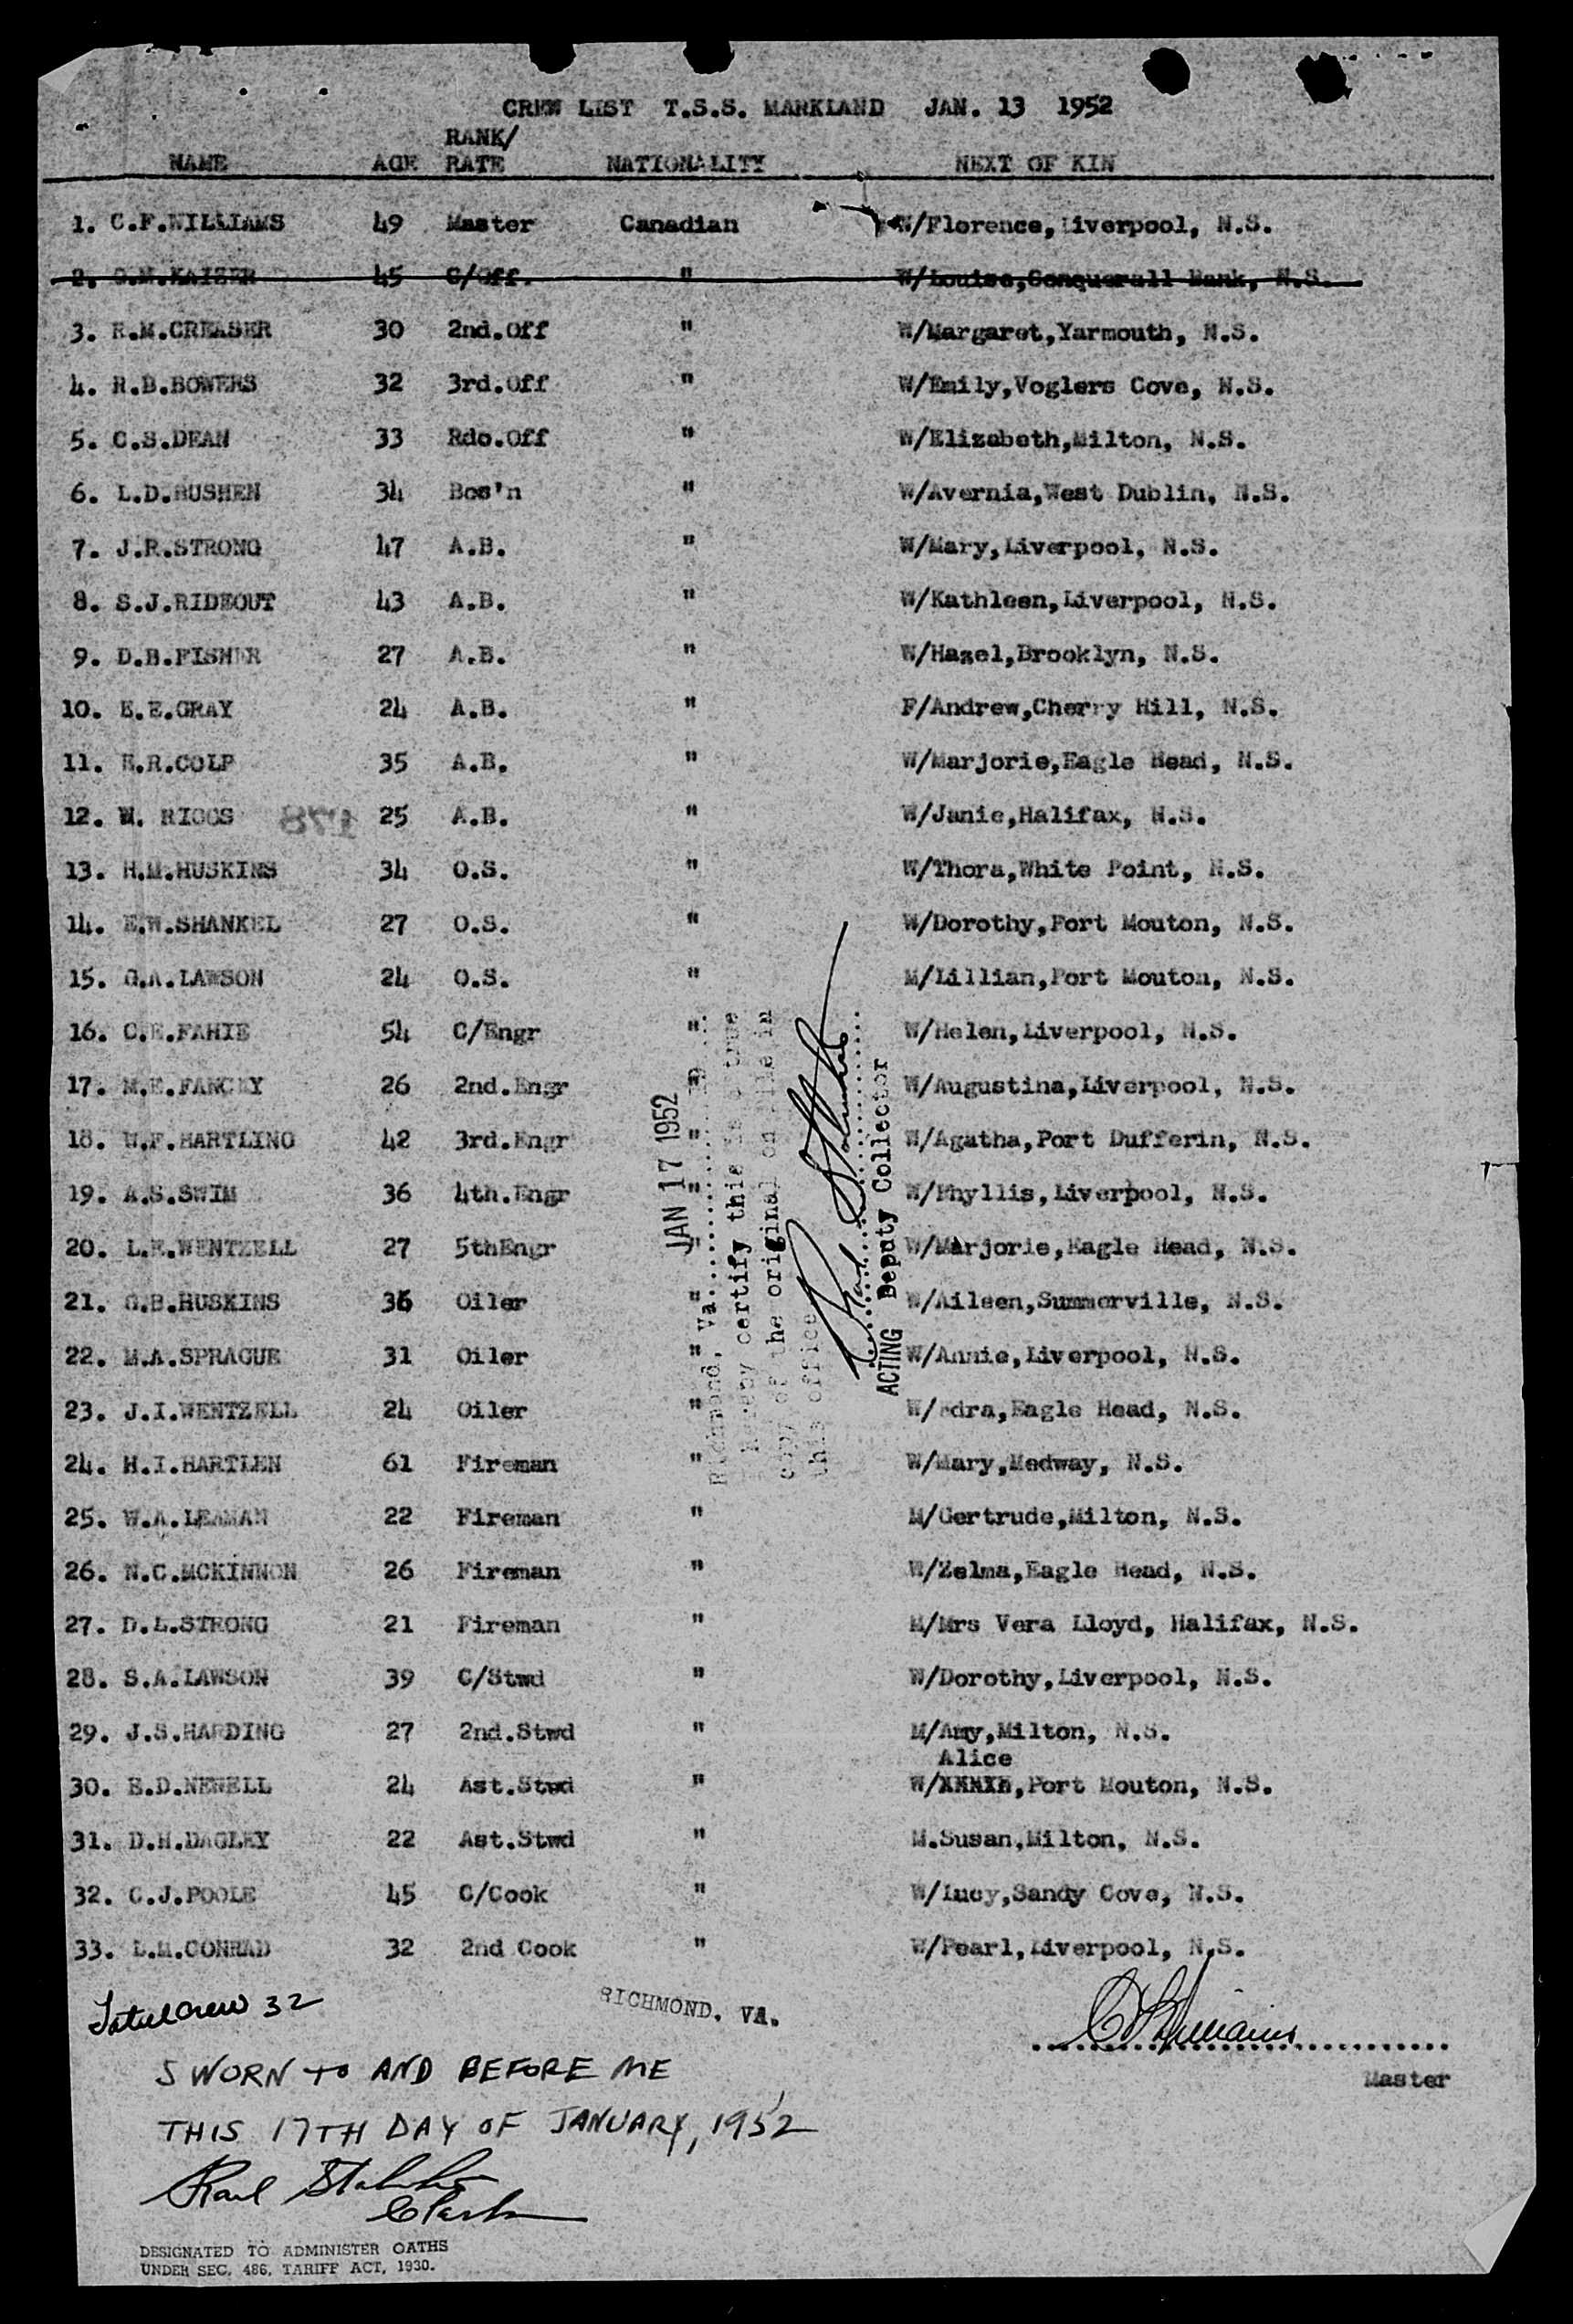 CREW LIST T.S.S. MARKLAND JAN. 13 1952
NAME AGE RANK/RATE NATIONALITY NEXT OF KIN
1. C.F.WILLIAMS 49 Master Canadian W/Florence,Liverpool, N.S.
2. G.M.KAIZER 45 C/Off. " W/Louise,Conquerall Bank, N.S.
3. R.M.CREASER 30 2nd.Off " W/Margaret,Yarmouth, N.S.
4. R.B.BOWERS 32 3rd.Off " W/Emily,Voglers Cove, N.S.
5. C.S.DEAN 33 Rdo.Off " W/Elizabeth,Milton, N.S.
6. L.D.BUSHEN 34 Bos'n " W/Avernia,West Dublin, N.S.
7. J.R.STRONG 47 A.B. " W/Mary,Liverpool, N.S.
8. S.J.RIDEOUT 43 A.B. " W/Kathleen,Liverpool, N.S.
9. D.B.FISHER 27 A.B. " W/Hazel,Brooklyn, N.S.
10. E.E.GRAY 24 A.B. " F/Andrew,Cherry Hill, N.S.
11. E.R.COLP 35 A.B. " W/Marjorie,Eagle Head, N.S.
12. W. RIGGS 25 A.B. " W/Janie,Halifax, N.S.
13. H.M.HUSKINS 34 O.S. " W/Thora,White Point, N.S.
14. E.W.SHANKEL 27 O.S. " W/Dorothy,Port Mouton, N.S.
15. G.A.LAWSON 24 O.S. " M/Lillian,Port Mouton, N.S.
16. C.E.FAHIE 54 C/Engr " W/Helen,Liverpool, N.S.
17. M.E.FANCEY 26 2nd.Engr " W/Augustina,Liverpool, N.S.
18. W.F.HARTLING 42 3rd.Engr " W/Agatha,Port Dufferin, N.S.
19. A.S.SWIM 36 4th.Engr " W/Phyllis,Liverpool, N.S.
20. L.E.WENTZELL 27 5thEngr " W/Marjorie,Eagle Head, N.S.
21. G.B.HUSKINS 36 Oiler " W/Aileen,Summerville, N.S.
22. M.A.SPRAGUE 31 Oiler " W/Annie,Liverpool, N.S.
23. J.I.WENTZELL 24 Oiler " Eagle Head, N.S.
24. H.I.HARTLEN 61 Fireman " W/Mary,Medway, N.S.
25. W.A.LEAMAN 22 Fireman " M/Gertrude,Milton, N.S.
26. N.C.MCKINNON 26 Fireman " W/Zelma,Eagle Head, N.S.
27. D.L.STRONG 21 Fireman " M/Mrs Vera Lloyd, Halifax, N.S.
28. S.A.LAWSON 39 C/Stwd " W/Dorothy,Liverpool, N.S.
29. J.S.HARDING 27 2nd.Stwd " M/Amy,Milton, N.S.
Alice
30. E.D.NEWELL 24 Ast.Stwd " W/XXXXX,Port Mouton, N.S.
31. D.H.DAGLEY 22 Ast.Stwd " M.Susan,Milton, N.S.
32. C.J.POOLE 45 C/Cook " W/Lucy,Sandy Cove, N.S.
33. L.M.CONRAD 32 2nd Cook " W/Pearl,Liverpool, N.S.
JAN 17 1952
Richmond, Va.
I hereby certify this is a true
copy of the original on file in
this office
ACTING Deputy Collector
Total Crew 32
RICHMOND, VA.
C F Williams
Master
SWORN TO AND BEFORE ME
THIS 17TH DAY OF JANUARY, 1952
Clerk
DESIGNATED TO ADMINISTER OATHS
UNDER SEC. 486, TARIFF ACT, 1930.